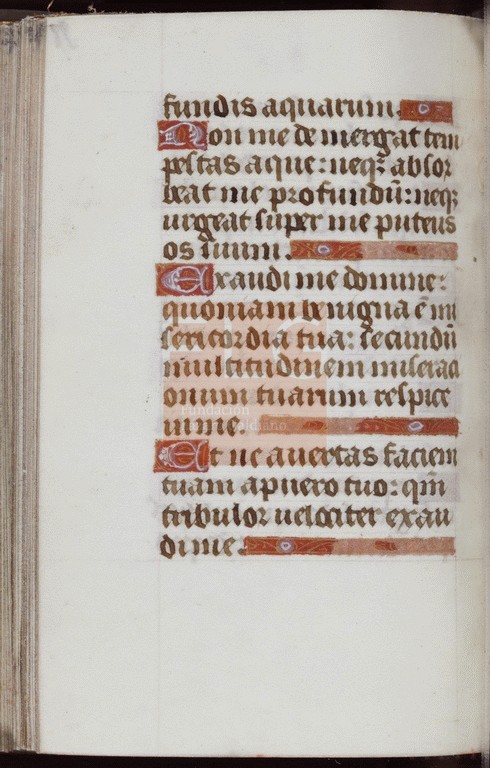 fundis aquarum.
Non me demergat tem
pestas aque: neqꝫ absor
beat me profundū: neqꝫ
urgeat super me puteus
os suum.
Exaudi me domine:
quoniam benigna ē mi
sericordia tua: secundū
multitudinem miserati
onum tuarum respice
in me.
Fundación
Lázaro Galdiano
Et ne avertas faciem
tuam a puero tuo: qm̄
tribulor velociter exau
di me.